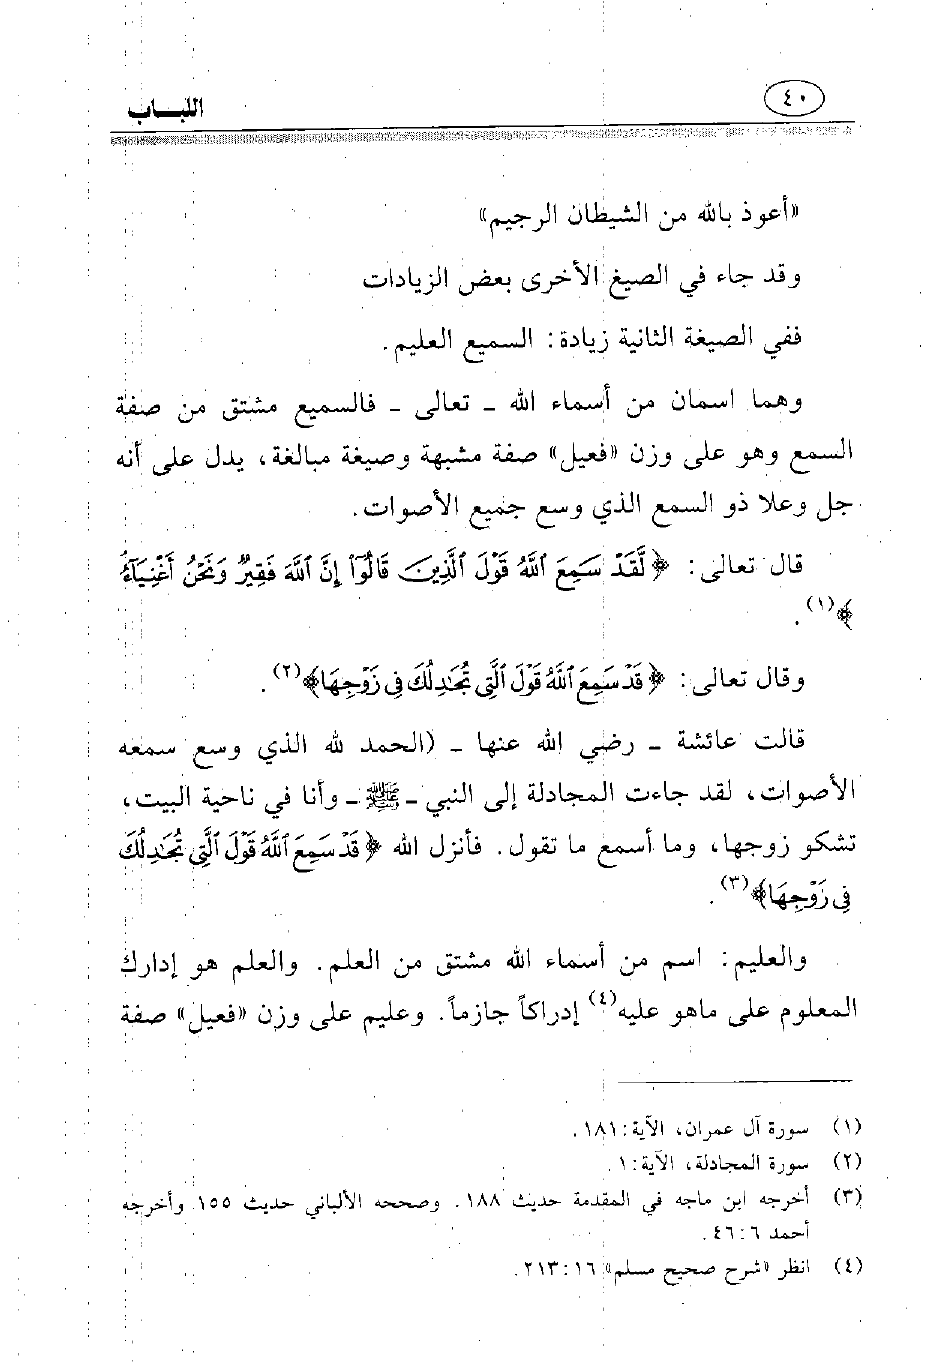 ٤٠
اللبـــاب
«أعوذ بالله من الشيطان الرجيم»
وقد جاء في الصيغ الأخرى بعض الزيادات
ففي الصيغة الثانية زيادة: السميع العليم.
وهما اسمان من أسماء الله ـ تعالى ـ فالسميع مشتق من صفة
السمع وهو على وزن «فعيل» صفة مشبهة وصيغة مبالغة، يدل على أنه
جل وعلا ذو السمع الذي وسع جميع الأصوات.
قال تعالى: ﴿لَّقَدْ سَمِعَ ٱللَّهُ قَوْلَ ٱلَّذِينَ قَالُوٓا۟ إِنَّ ٱللَّهَ فَقِيرٌ وَنَحْنُ أَغْنِيَآءُ
﴾(١).
وقال تعالى: ﴿قَدْ سَمِعَ ٱللَّهُ قَوْلَ ٱلَّتِى تُجَٰدِلُكَ فِى زَوْجِهَا﴾(٢).
قالت عائشة ـ رضي الله عنها ـ (الحمد لله الذي وسع سمعه
الأصوات، لقد جاءت المجادلة إلى النبي ـ ﷺ ـ وأنا في ناحية البيت،
تشكو زوجها، وما أسمع ما تقول. فأنزل الله ﴿قَدْ سَمِعَ ٱللَّهُ قَوْلَ ٱلَّتِى تُجَٰدِلُكَ
فِى زَوْجِهَا﴾(٣).
والعليم: اسم من أسماء الله مشتق من العلم. والعلم هو إدارك
المعلوم على ماهو عليه(٤) إدراكاً جازماً. وعليم على وزن «فعيل» صفة
(١) سورة آل عمران، الآية: ١٨١.
(٢) سورة المجادلة، الآية: ١.
(٣) أخرجه ابن ماجه في المقدمة حديث ١٨٨. وصححه الألباني حديث ١٥٥ وأخرجه
أحمد ٦: ٤٦.
(٤) انظر «شرح صحيح مسلم» ١٦: ٢١٣.